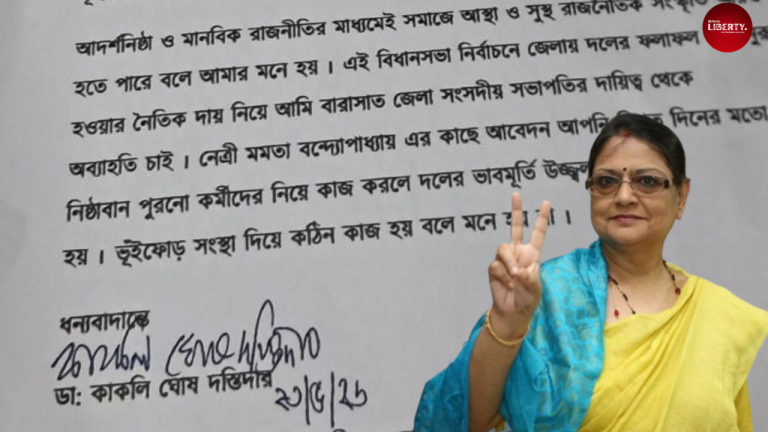 LIBERTY.
আদর্শনিষ্ঠা ও মানবিক রাজনীতির মাধ্যমেই সমাজে আস্থা ও সুস্থ রাজনৈতিক
হতে পারে বলে আমার মনে হয় । এই বিধানসভা নির্বাচনে জেলায় দলের ফলাফল
হওয়ার নৈতিক দায় নিয়ে আমি বারাসাত জেলা সংসদীয় সভাপতির দায়িত্ব থেকে
অব্যাহতি চাই । নেত্রী মমতা বন্দ্যোপাধ্যায় এর কাছে আবেদন আপনি দিনের মতো
নিষ্ঠাবান পুরনো কর্মীদের নিয়ে কাজ করলে দলের ভাবমূর্তি
হয় । ভূঁইফোড় সংস্থা দিয়ে কঠিন কাজ হয় বলে মনে ।
ধন্যবাদান্তে
কাকলি ঘোষ দস্তিদার
ডা: কাকলি ঘোষ দস্তিদার
২৩/৫/২৬